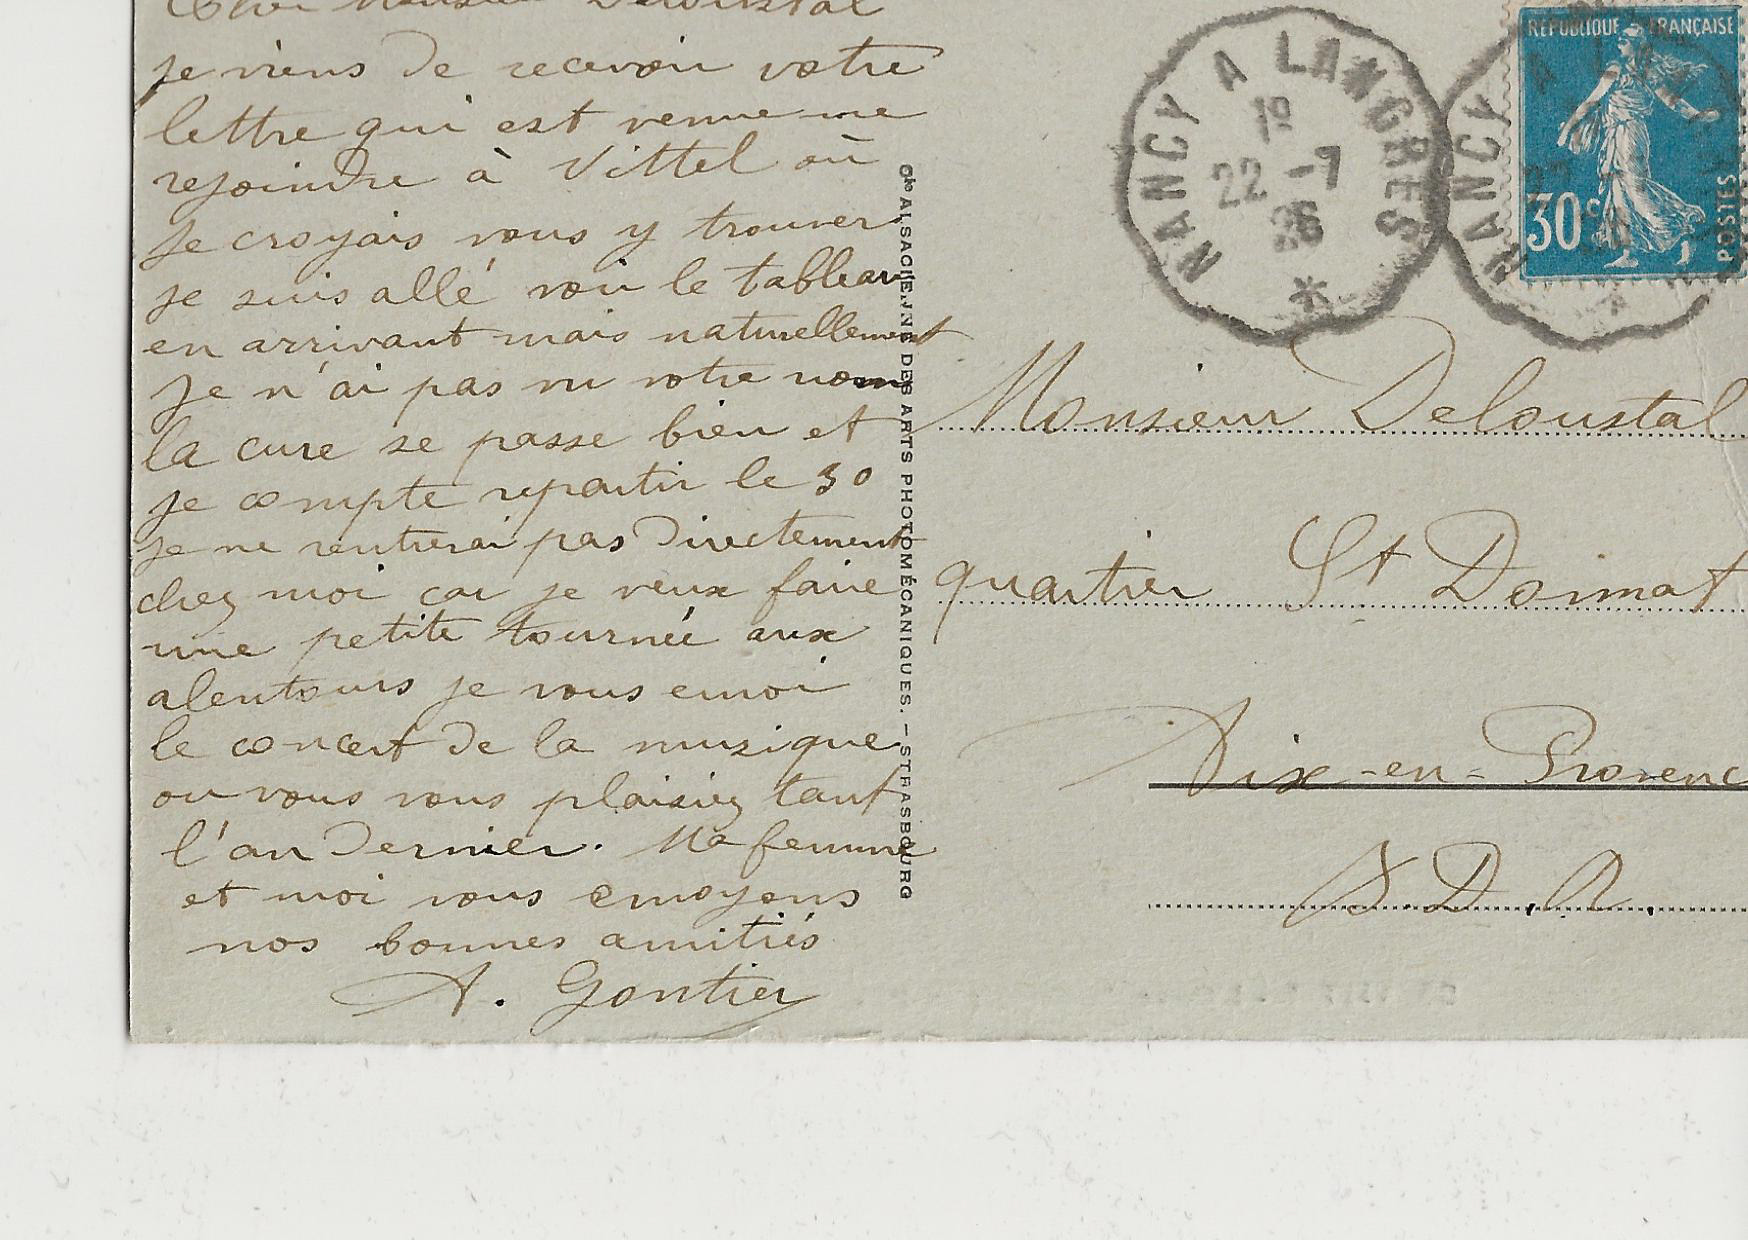 Cher Monsieur Deloustal
je viens de recevoir votre
lettre qui est venue me
rejoindre à Vittel où
je croyais vous y trouver
je suis allé voir le tableau
en arrivant mais naturellement
je n'ai pas vu votre nom
la cure se passe bien et
je compte repartir le 30
je ne rentrerai pas directement
chez moi car je veux faire
une petite tournée aux
alentours je vous envoi
le concert de la muzique
ou vous vous plaisiez tant
l'an dernier. Ma femme
et moi vous envoyons
nos bonnes amitiés
A. Gontier
Cie ALSACIENNE DES ARTS PHOTOMÉCANIQUES. — STRASBOURG
NANCY A LANGRES
1º
22 -7
26
RÉPUBLIQUE FRANÇAISE
30c
POSTES
NANCY A
Monsieur Deloustal
quartier St Doimat
Aix-en-Provenc